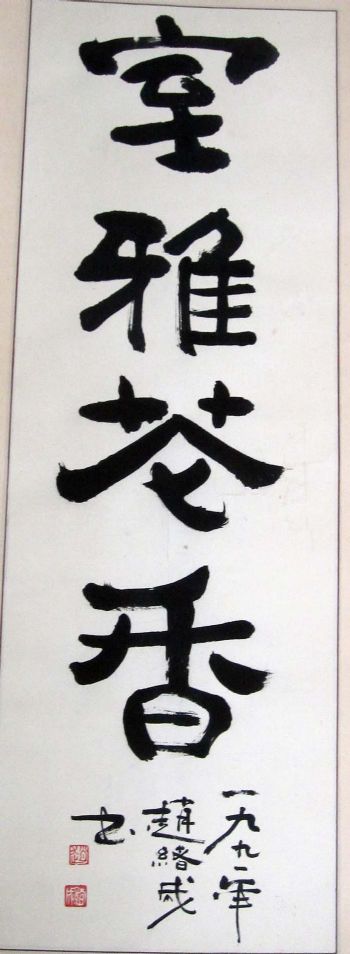 室雅花香
一九九一年
趙緒成
书